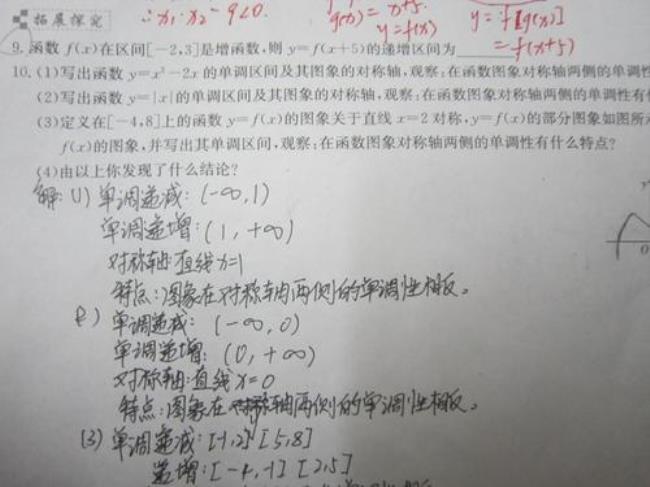 ∴x₁·x₂-9<0.
g(x)=x+5.
y=f(x)
y=f[g(x)]
=f(x+5)
拓展探究
9.函数 f(x)在区间[-2,3]是增函数,则 y=f(x+5)的递增区间为
10.(1)写出函数 y=x²-2x 的单调区间及其图象的对称轴,观察:在函数图象对称轴两侧的单调性
(2)写出函数 y=|x|的单调区间及其图象的对称轴,观察:在函数图象对称轴两侧的单调性有
(3)定义在[-4,8]上的函数 y=f(x)的图象关于直线 x=2 对称,y=f(x)的部分图象如图所
f(x)的图象,并写出其单调区间,观察:在函数图象对称轴两侧的单调性有什么特点?
(4)由以上你发现了什么结论?
解:(1)单调递减:(-∞,1)
单调递增:(1,+∞)
对称轴:直线x=1
特点:图象在对称轴两侧的单调性相反。
单调递减:(-∞,0)
单调递增:(0,+∞)
对称轴:直线x=0
特点:图象在对称轴两侧的单调性相反。
(3)单调递减:[-1,2] [5,8]
递增:[-4,-1] [2,5]
0